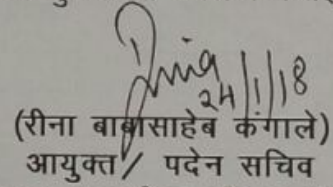 24/1/18
(रीना बाबासाहेब कंगाले)
आयुक्त / पदेन सचिव